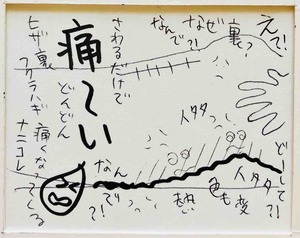 えて!
なぜ裏?
なんで?!
さわるだけで
痛〜い
どんどん
ヒザ裏
フクラハギ痛くなってくる
ナニコレ
人タタ
人タタ
どーして?!
色も変
熱い
なんで?!